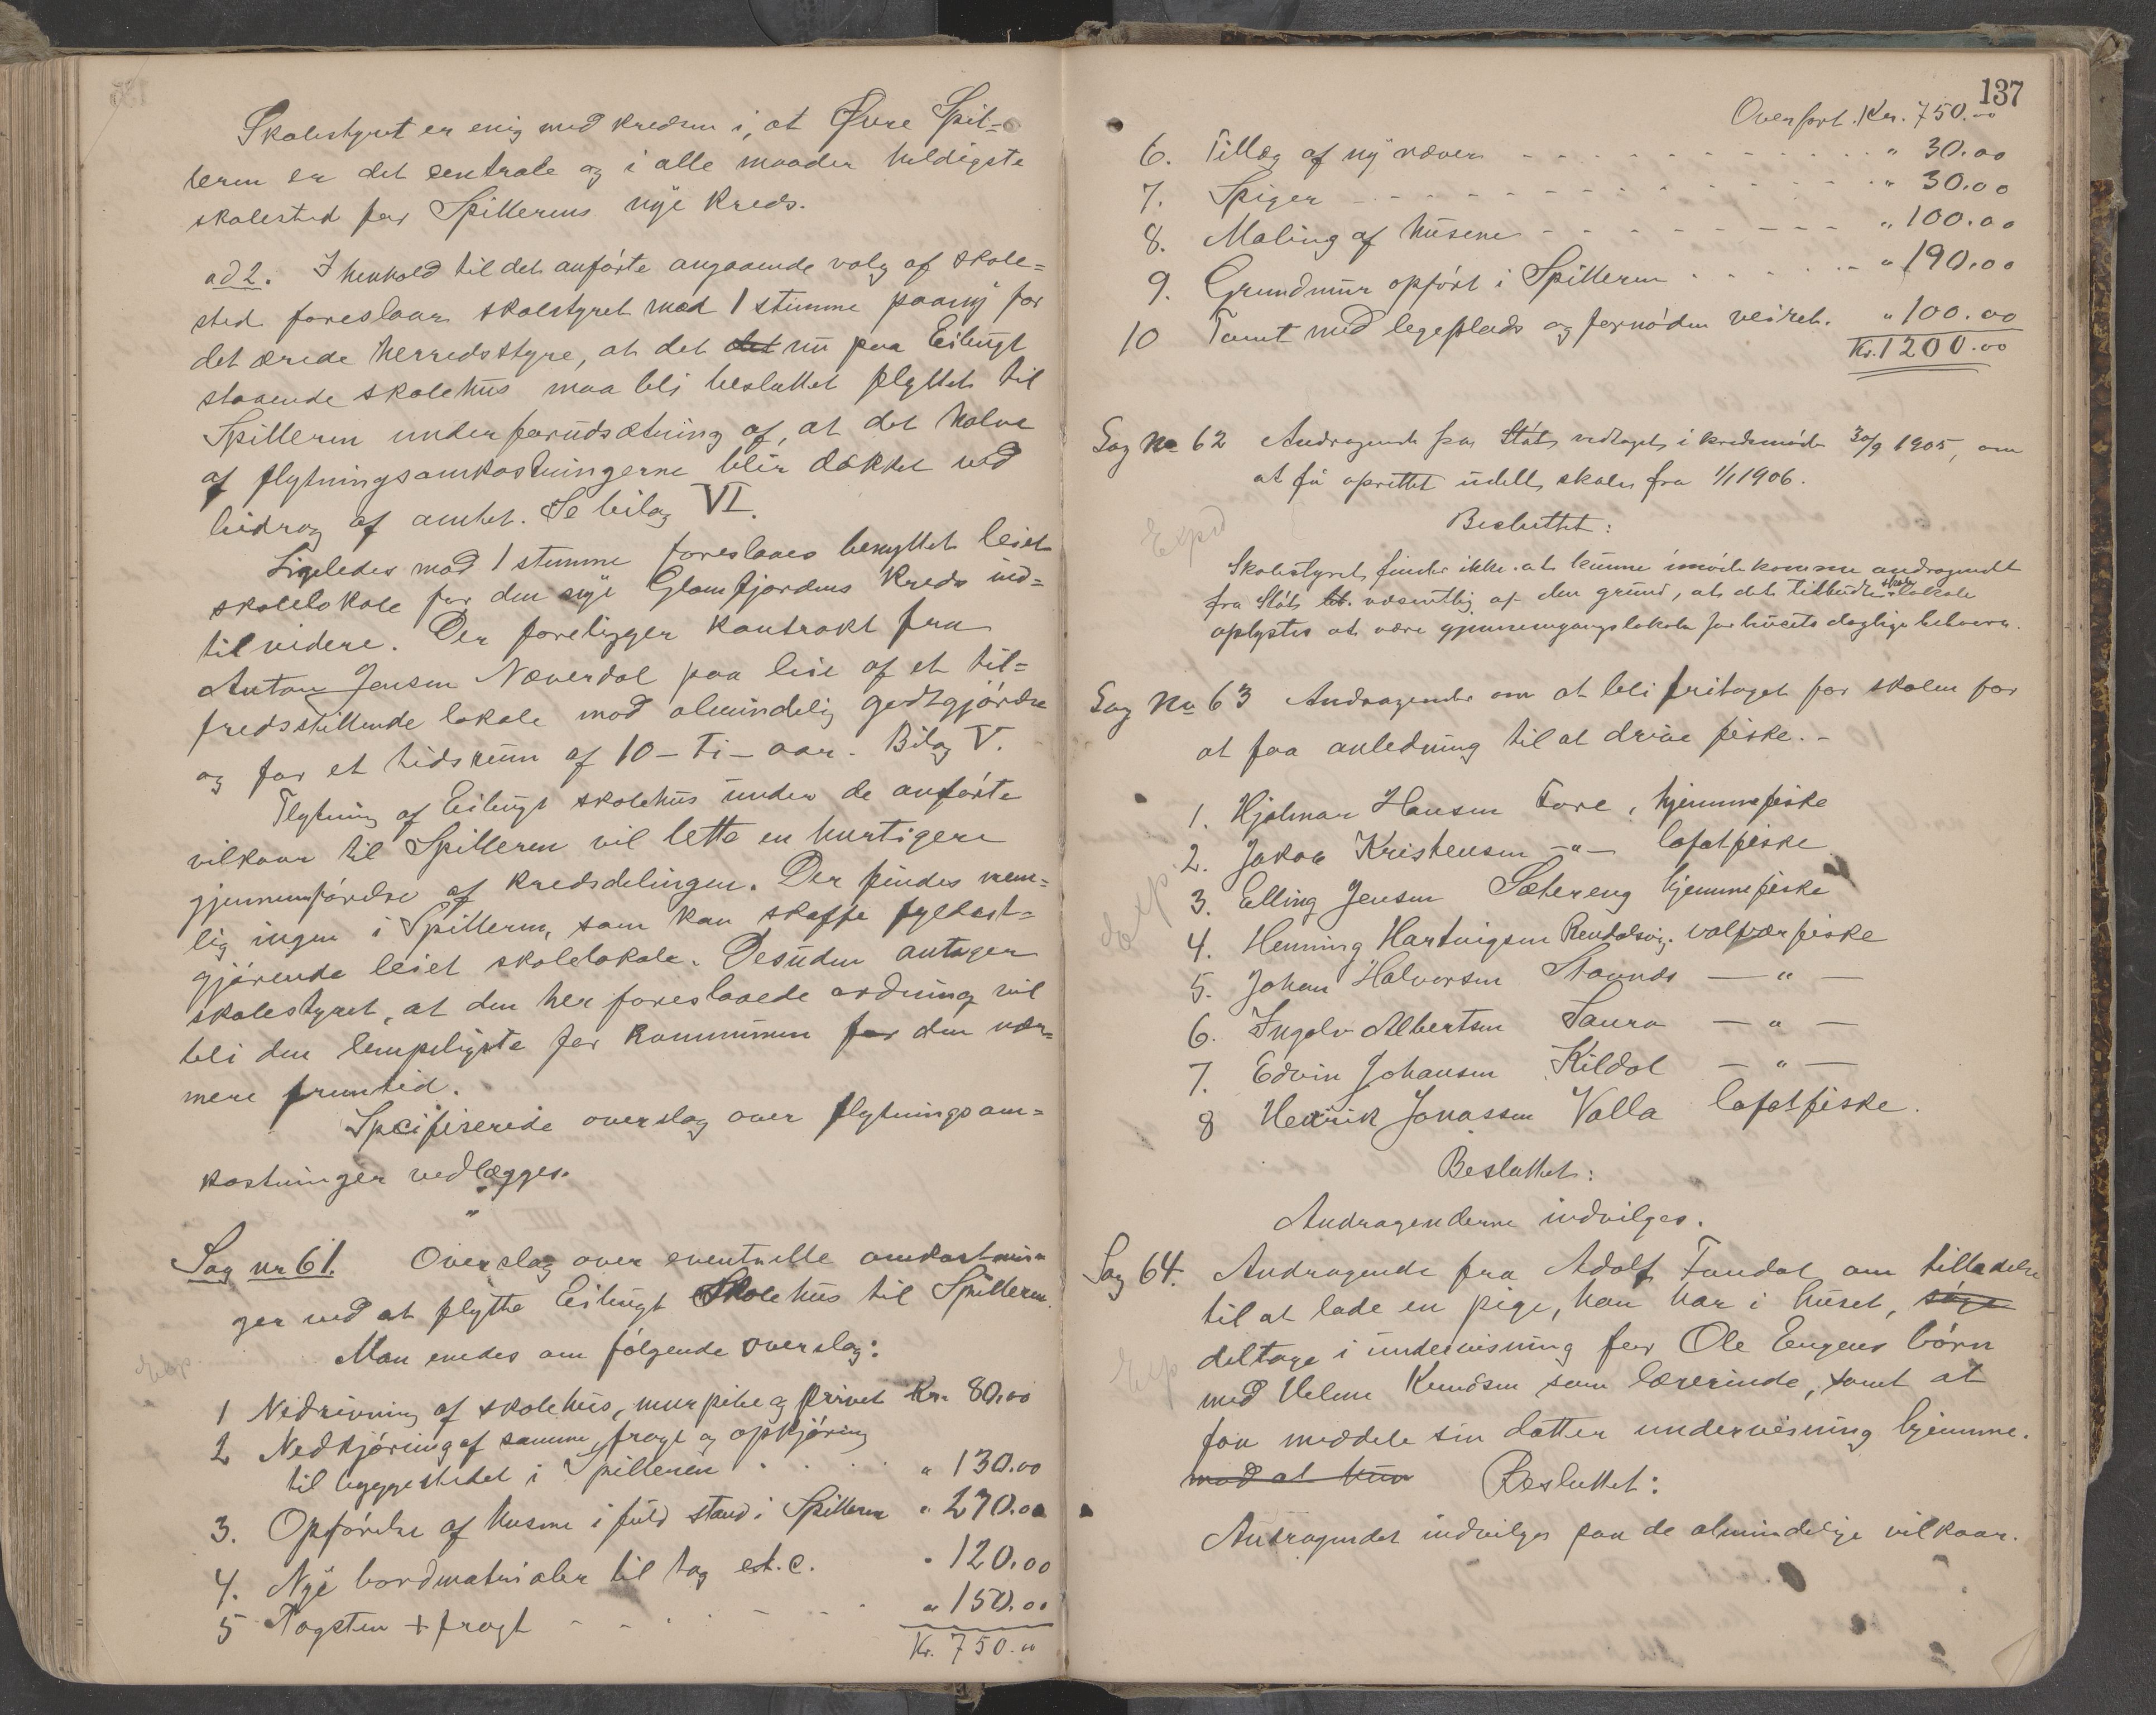 Skolestyret er enig med kredsen i, at Øvre Spil-
leren er det centrale og i alle maader heldigste
skolested for Spillerens nye kreds.
ad 2. I henhold til det anførte angaaende valg af skole=
sted foreslaar skolestyret mod 1 stemme paany for
det ærede herredsstyre, at det det nu paa Eilingt
staaende skolehus maa bli besluttet flyttet til
Spilleren under forudsætning af, at det halve
af flytningsomkostningerne blir dækket ved
bidrag af amtet. Se bilag VI.
Ligeledes mod 1 stemme foreslaaes benyttet leiet
skolelokale for den nye Glomfjordens kreds ind=
til videre. Der foreligger kontrakt fra
Anton Jensen Næverdal paa leie af et til=
fredsstillende lokale mod almindelig godtgjørelse
og for et tidsrum af 10 - Ti - aar. Bilag V.
Flytning af Eilingt skolehus under de anførte
vilkaar til Spilleren vil lette en hurtigere
gjennemførelse af kredsdelingen. Der findes nem=
lig ingen i Spilleren, som kan skaffe fyldest=
gjørende leiet skolelokale. Desuden antager
skolestyret, at den her foreslaaede ordning vil
bli den lempeligste for kommunen for den nær=
mere fremtid.
Specifiserede overslag over flytningsom=
kostninger vedlægges.
Sag nr 61. Overslag over eventuelle omkostnin=
ger ved at flytte Eilingt Skolehus til Spilleren.
Exp.
Man enedes om følgende overslag:
1 Nedrivning af skolehus, murpibe og privet Kr. 80.00
2 Nedkjøring af samme, fragt og opkjøring
til byggestedet i Spilleren . . . . " 130.00
3. Opførelse af husene i fuld stand i Spilleren " 270.00
4. Nye bordmaterialer til tag est.c. " 120.00
5 Tagsten + fragt - - . - - . " 150.00
Kr. 750.00
137
Overført. Kr. 750.00
6. Tillæg af ny næver - - - - - - " 30.00
7. Spiger - - - - - - - - " 30.00
8. Maling af husene - - - - - - - " 100.00
9. Grundmur opført i Spilleren . . . . . - " 190.00
10 Tomt med legeplads og fornøden veiret. " 100.00
Kr. 1200.00
Sag No 62 Andragende fra Støt, vedtaget i kredsmøde 30/9 1905, om
at få oprettet udelt skole fra 1/1 1906.
Exped
Besluttet:
Skolestyret finder ikke at kunne imødekomme andragendet
fra Støt, væsentlig af den grund, at det tilbudte skolelokale
oplystes at være gjennemgangslokale for husets daglige behov.
Sag No 63 Andragender om at bli fritaget for skolen for
at faa anledning til at drive fiske. -
exp.
1. Hjalmar Hansen Fore, hjemmefiske
2. Jakob Kristensen - " - lofotfiske
3. Elling Jensen Sætereng hjemmefiske
4. Henning Hartvigsen Rendalsvig. valværfiske
5. Johan Halvorsen Staunds - " -
6. Ingolv Albertsen Saura - " -
7. Edvin Johansen Kildal - " -
8 Henrik Jonassen Valla lofotfiske.
Besluttet:
Andragenderne indvilges.
Sag 64. Andragende fra Adolf Fondal om tilladelse
til at lade en pige, han har i huset, søge
deltage i undervisning for Ole Engens børn
Exp
med Helene Knudsen som lærerinde, samt at
faa meddele sin datter undervisning hjemme.
mod at hun Besluttet:
Andragendet indvilges paa de almindelige vilkaar.